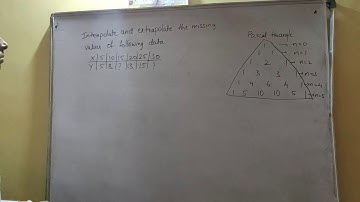 Interpolate and extrapolate the missing
values of following data
X 5 10 15 20 25 30
Y 5 8 ? 13 15 ?
Pascal triangle
1 → n=0
1 1 → n=1
1 2 1 → n=2
1 3 3 1 → n=3
1 4 6 4 1 → n=4
1 5 10 10 5 1 → n=5